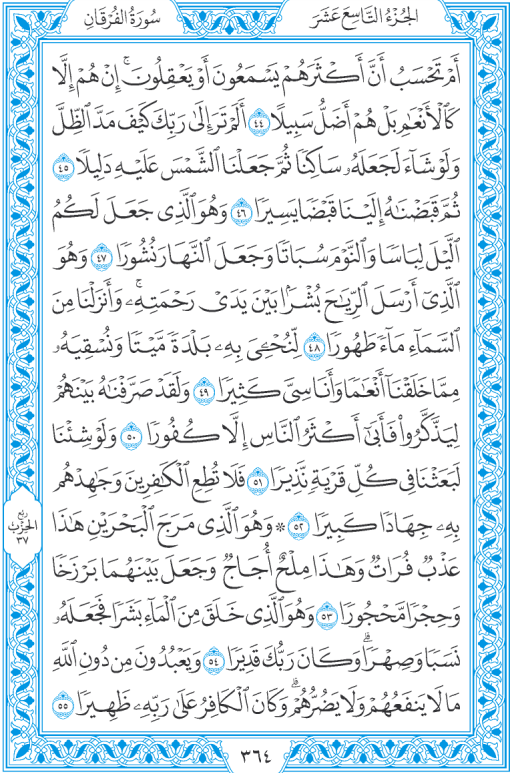 الجُزْءُ التَّاسِعَ عَشَرَ
سُورَةُ الفُرْقَانِ
أَمْ تَحْسَبُ أَنَّ أَكْثَرَهُمْ يَسْمَعُونَ أَوْ يَعْقِلُونَۚ إِنْ هُمْ إِلَّا
كَٱلْأَنْعَٰمِ بَلْ هُمْ أَضَلُّ سَبِيلًا ٤٤ أَلَمْ تَرَ إِلَىٰ رَبِّكَ كَيْفَ مَدَّ ٱلظِّلَّ
وَلَوْ شَآءَ لَجَعَلَهُۥ سَاكِنًا ثُمَّ جَعَلْنَا ٱلشَّمْسَ عَلَيْهِ دَلِيلًا ٤٥
ثُمَّ قَبَضْنَٰهُ إِلَيْنَا قَبْضًا يَسِيرًا ٤٦ وَهُوَ ٱلَّذِى جَعَلَ لَكُمُ
ٱلَّيْلَ لِبَاسًا وَٱلنَّوْمَ سُبَاتًا وَجَعَلَ ٱلنَّهَارَ نُشُورًا ٤٧ وَهُوَ
ٱلَّذِىٓ أَرْسَلَ ٱلرِّيَٰحَ بُشْرًۢا بَيْنَ يَدَىْ رَحْمَتِهِۦۚ وَأَنزَلْنَا مِنَ
ٱلسَّمَآءِ مَآءً طَهُورًا ٤٨ لِّنُحْـِۧىَ بِهِۦ بَلْدَةً مَّيْتًا وَنُسْقِيَهُۥ
مِمَّا خَلَقْنَآ أَنْعَٰمًا وَأَنَاسِىَّ كَثِيرًا ٤٩ وَلَقَدْ صَرَّفْنَٰهُ بَيْنَهُمْ
لِيَذَّكَّرُوا۟ فَأَبَىٰٓ أَكْثَرُ ٱلنَّاسِ إِلَّا كُفُورًا ٥٠ وَلَوْ شِئْنَا
لَبَعَثْنَا فِى كُلِّ قَرْيَةٍ نَّذِيرًا ٥١ فَلَا تُطِعِ ٱلْكَٰفِرِينَ وَجَٰهِدْهُم
بِهِۦ جِهَادًا كَبِيرًا ٥٢ ۞ وَهُوَ ٱلَّذِى مَرَجَ ٱلْبَحْرَيْنِ هَٰذَا
عَذْبٌ فُرَاتٌ وَهَٰذَا مِلْحٌ أُجَاجٌ وَجَعَلَ بَيْنَهُمَا بَرْزَخًا
وَحِجْرًا مَّحْجُورًا ٥٣ وَهُوَ ٱلَّذِى خَلَقَ مِنَ ٱلْمَآءِ بَشَرًا فَجَعَلَهُۥ
نَسَبًا وَصِهْرًاۗ وَكَانَ رَبُّكَ قَدِيرًا ٥٤ وَيَعْبُدُونَ مِن دُونِ ٱللَّهِ
مَا لَا يَنفَعُهُمْ وَلَا يَضُرُّهُمْۗ وَكَانَ ٱلْكَافِرُ عَلَىٰ رَبِّهِۦ ظَهِيرًا ٥٥
ربع
الحزب
٣٧
٣٦٤